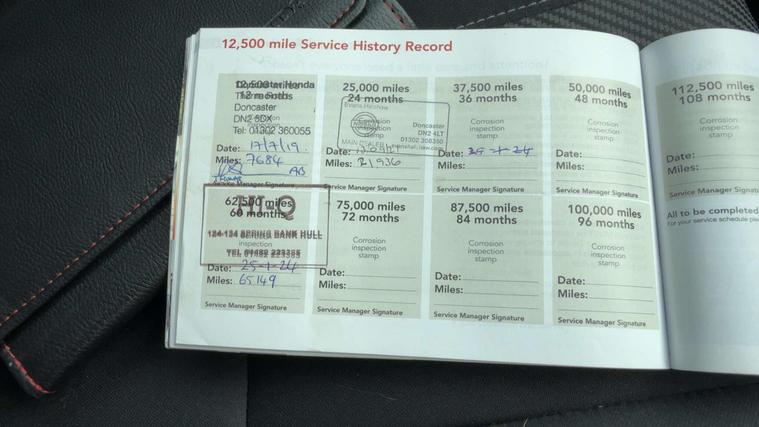 12,500 mile Service History Record
12,500 miles
12 months
Doncaster Honda
Doncaster
DN2
Tel: 01302 360055
Date: 17/7/19.
Miles: 7684
AB
Service Manager Signature
25,000 miles
24 months
Evans Halshaw
Corrosion
inspection
stamp
Doncaster
DN2 4LT
MAIN DEALER
Date:
Miles: 21936
Service Manager Signature
37,500 miles
36 months
Corrosion
inspection
stamp
Date:
Miles:
Service Manager Signature
50,000 miles
48 months
Corrosion
inspection
stamp
Date:
Miles:
Service Manager Signature
112,500 miles
108 months
Date:
Miles:
Service Manager Signatu
62,500 miles
60 months
HiQ
124-134 SPRING BANK HULL
inspection
TEL 01482 223355
Date: 25-1-24
Miles: 65149
Service Manager Signature
75,000 miles
72 months
Corrosion
inspection
stamp
Date:
Miles:
Service Manager Signature
87,500 miles
84 months
Corrosion
inspection
stamp
Date:
Miles:
Service Manager Signature
100,000 miles
96 months
Corrosion
inspection
stamp
Date:
Miles:
Service Manager Signature
All to be completed
For your service schedule plea